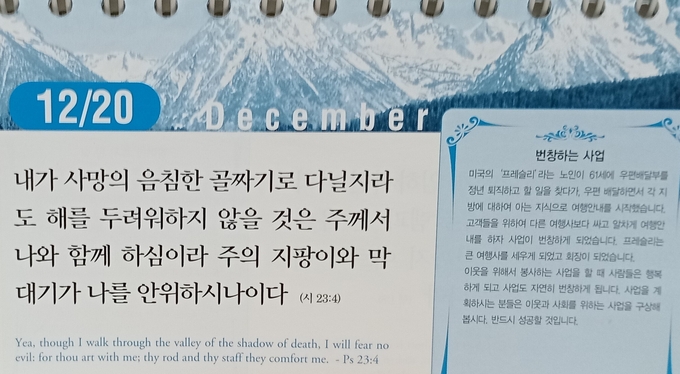 12/20
December
내가 사망의 음침한 골짜기로 다닐지라
도 해를 두려워하지 않을 것은 주께서
나와 함께 하심이라 주의 지팡이와 막
대기가 나를 안위하시나이다 (시 23:4)
Yea, though I walk through the valley of the shadow of death, I will fear no
evil: for thou art with me; thy rod and thy staff they comfort me. - Ps 23:4
번창하는 사업
미국의 '프레슬리'라는 노인이 61세에 우편배달부를
정년 퇴직하고 할 일을 찾다가, 우편 배달하면서 각 지
방에 대하여 아는 지식으로 여행안내를 시작했습니다.
고객들을 위하여 다른 여행사보다 싸고 알차게 여행안
내를 하자 사업이 번창하게 되었습니다. 프레슬리는
큰 여행사를 세우게 되었고 회장이 되었습니다.
이웃을 위해서 봉사하는 사업을 할 때 사람들은 행복
하게 되고 사업도 자연히 번창하게 됩니다. 사업을 계
획하시는 분들은 이웃과 사회를 위하는 사업을 구상해
봅시다. 반드시 성공할 것입니다.